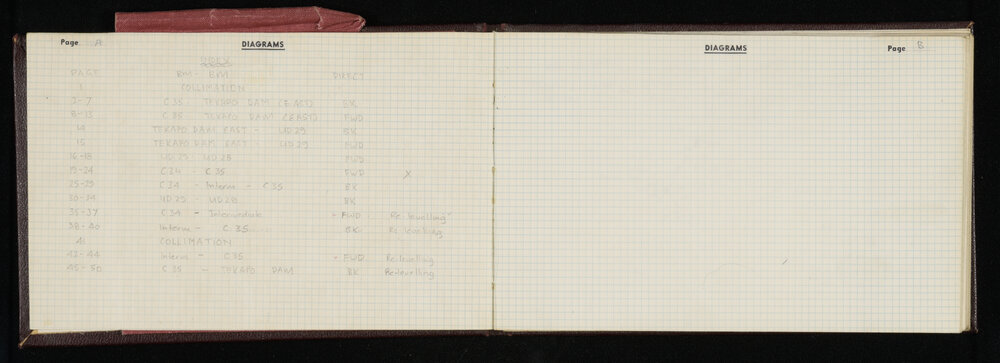 Page A
DIAGRAMS
INDEX
PAGE BM - BM DIRECT
1 COLLIMATION
2-7 C35 - TEKAPO DAM (EAST) BK
8-13 C35 TEKAPO DAM (EAST) FWD
14 TEKAPO DAM EAST - UD29 BK
15 TEKAPO DAM EAST - UD29 FWD
16-18 UD29 - UD28 FWD
19-24 C34 - C35 FWD X
25-29 C34 - Interm - C35 BK
30-34 UD29 - UD28 BK
35-37 C34 - Intermediate - FWD Re-levelling
38-40 Interm - C35 BK Re levelling
41 COLLIMATION
42-44 Interm - C35 - FWD Re-levelling
45-50 C35 - TEKAPO DAM BK Re-levelling
DIAGRAMS
Page B